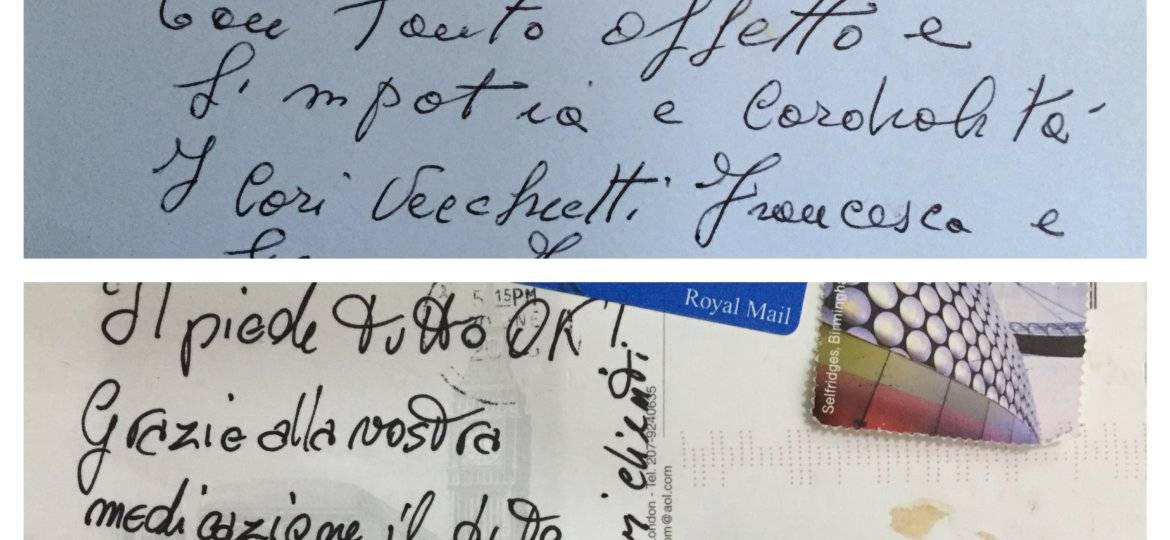 Con Tanto affetto e
Simpatia e Cordialità
I Cori Vecchietti Francesca e
Il piede tutto OK!
Grazie alla vostra
medicazione il dito
15PM
Royal Mail
Selfridges, Birmingha
clienti
ondon - Tel. 207-9240635
om@aol.com